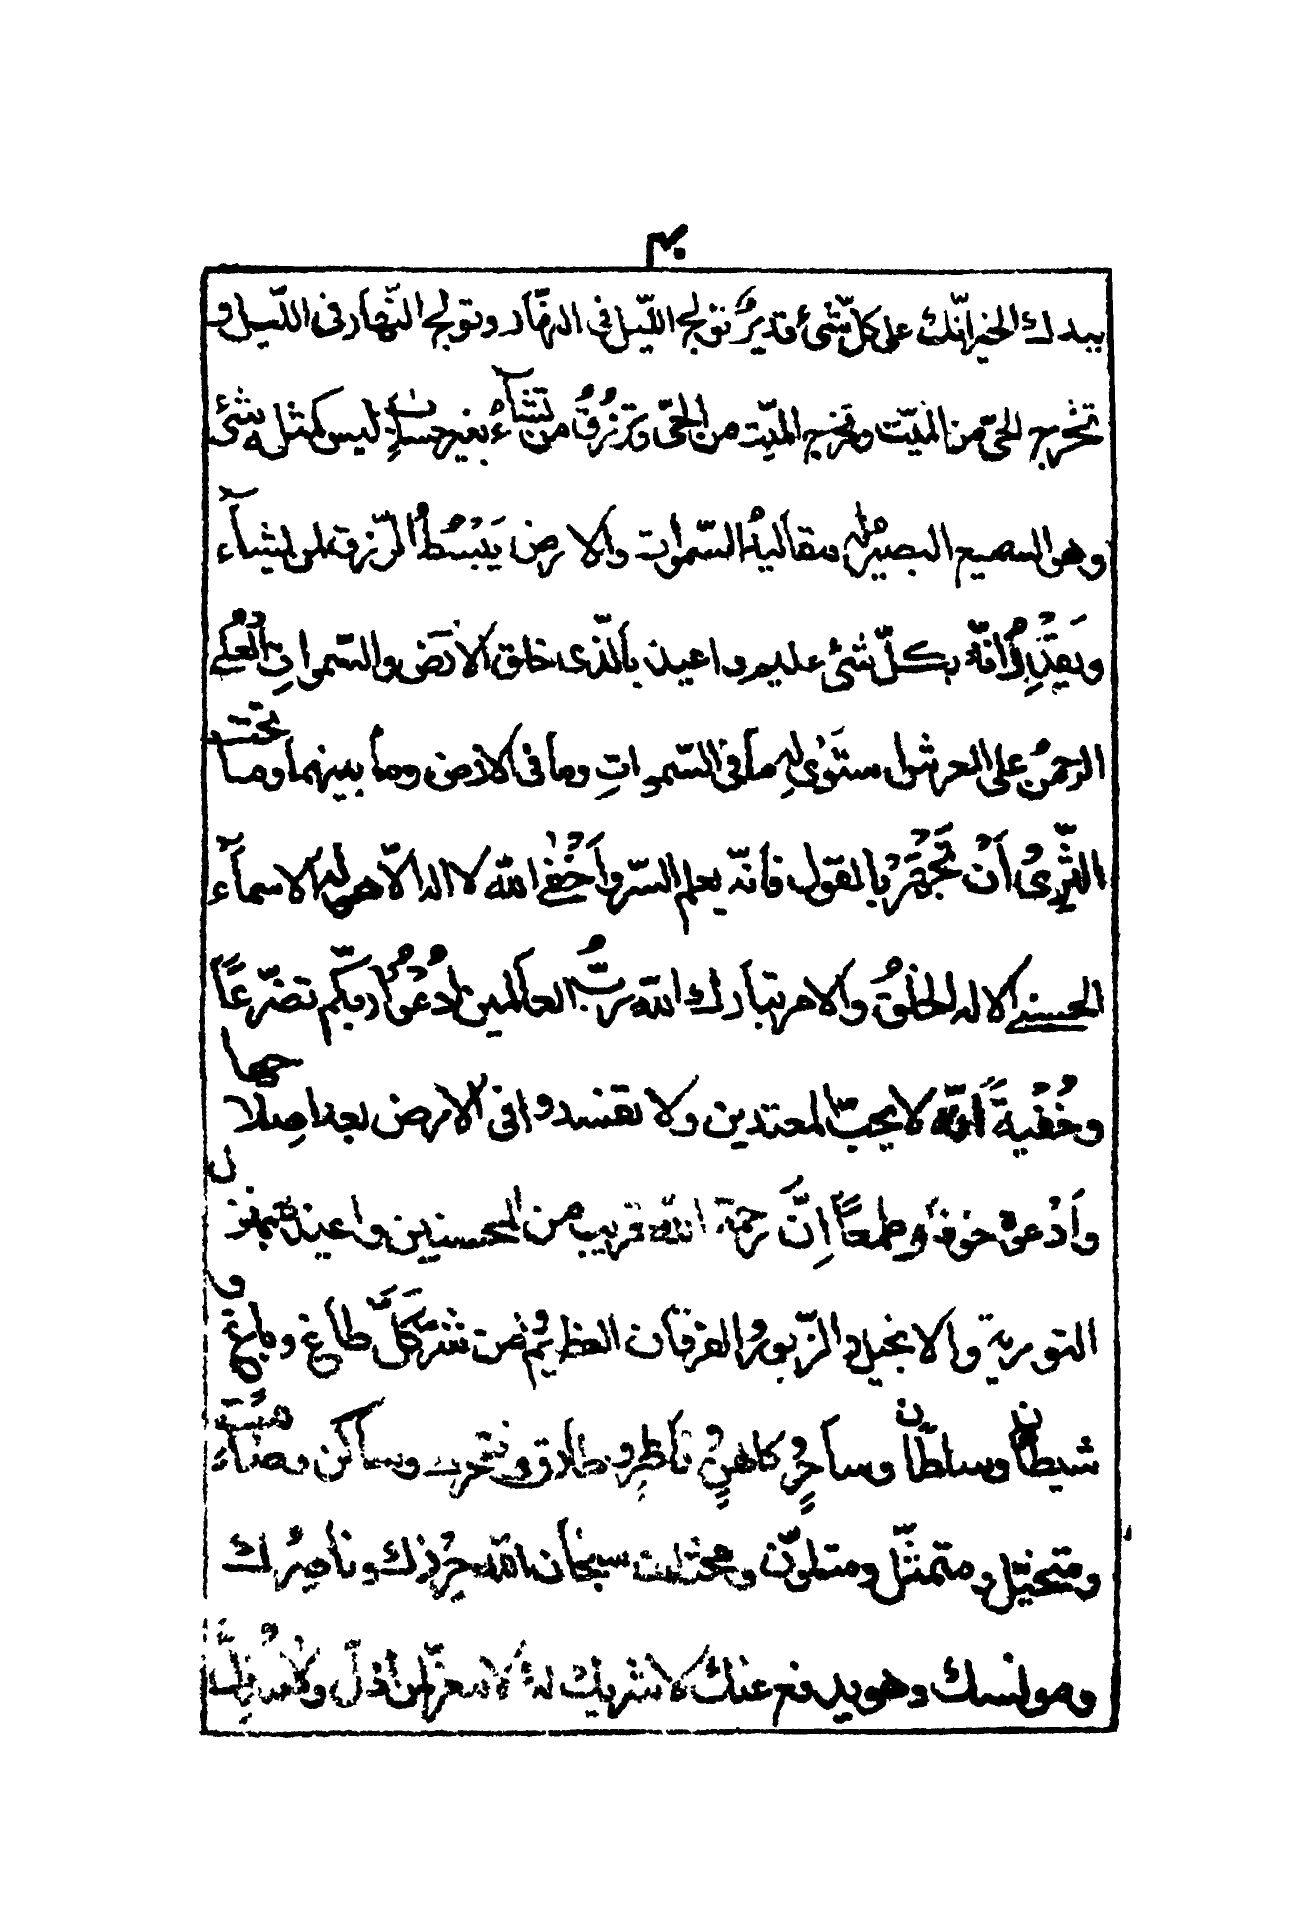 بيدك الخير انّك على كلّ شئ قديرٌ تولج اللّيل فى النهّار وتولج النّهار فى اللّيل و
تخرج الحىّ من الميّت وتخرج الميّت من الحىّ وترزقُ من تشآءُ بغير حسابٍ ليس كمثله شئ
وهو السميع البصير له مقاليدُ السّموات والارض يَبْسُطُ الرّزق لمن يشآء
وَيقْدِرُ انّهُ بكلّ شئ عليم واعيذ بالّذى خلق الارَض والسّمواتِ العُلىٰ
الرحمنُ على العرش استَوىٰ لهِ مآ فى السّمواتِ وما فى الارض وما بينهما وما تحت
الثّرىٰ وَاِنْ تَجْهَرْ بالقول فانّه يعلم السّر واَخْفٰى الله لا اله الاّ هو له الاسمآء
الحسنى الا له الخلقُ والامر تبارك الله ربُّ العالمين اُدْعُوْا ربّكم تضرّعًا
وخُفْيةً انّهُ لا يحبّ المعتدين ولا تفسدوا فى الارض بعد اصلاحها
وَادْعوهُ خوفًا وطمعًا اِنَّ رحمة الله قريب من المحسنين واعيذ بمنزل
التورية والانجيل والزّبور والفرقان العظيم من شرّ كَلّ طاغ وباغ و
شيطان وسلطان وساحرٍ كاهنٍ ناظرٍ وطارق ومتحرك وساكن وصامت
ومتخيّل ومتمثّل ومتلوّن ومحتلث سبحان الله حِرْزك وناصرُك
ومونسك وهو يدفع عنك لا شريك لهُ لا معزّ لمن اذلّ ولا مُذِلَّ